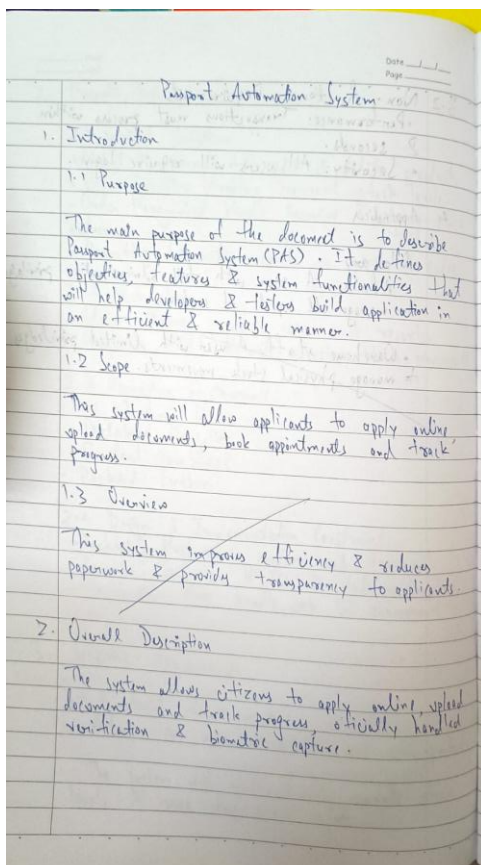 Date
Page
Passport Automation System
1. Introduction
1.1 Purpose
The main purpose of the document is to describe
Passport Automation System (PAS). It defines
objectives, features & system functionalities that
will help developers & testers build application in
an efficient & reliable manner.
1.2 Scope
This system will allow applicants to apply online,
upload documents, book appointments and track
progress.
1.3 Overview
This system improves efficiency & reduces
paperwork & provides transparency to applicants.
2. Overall Description
The system allows citizens to apply online, upload
documents and track progress, oficially handled
verification & biometric capture.